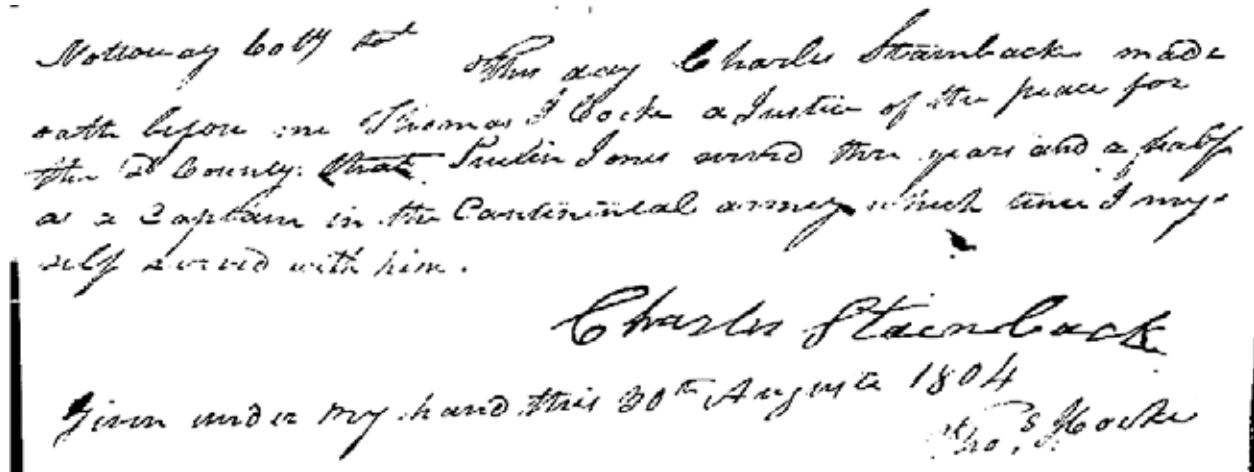 Nottoway Coty Sct
This day Charles Stainback made
oath before me Thomas J Cocke a Justice of the peace for
the sd County. that Jones served three years and a half
as a Captain in the Continental army which time I my
self served with him.
Charles Stainback
Given under my hand this 30th Auguste 1804
Thos J Cocke